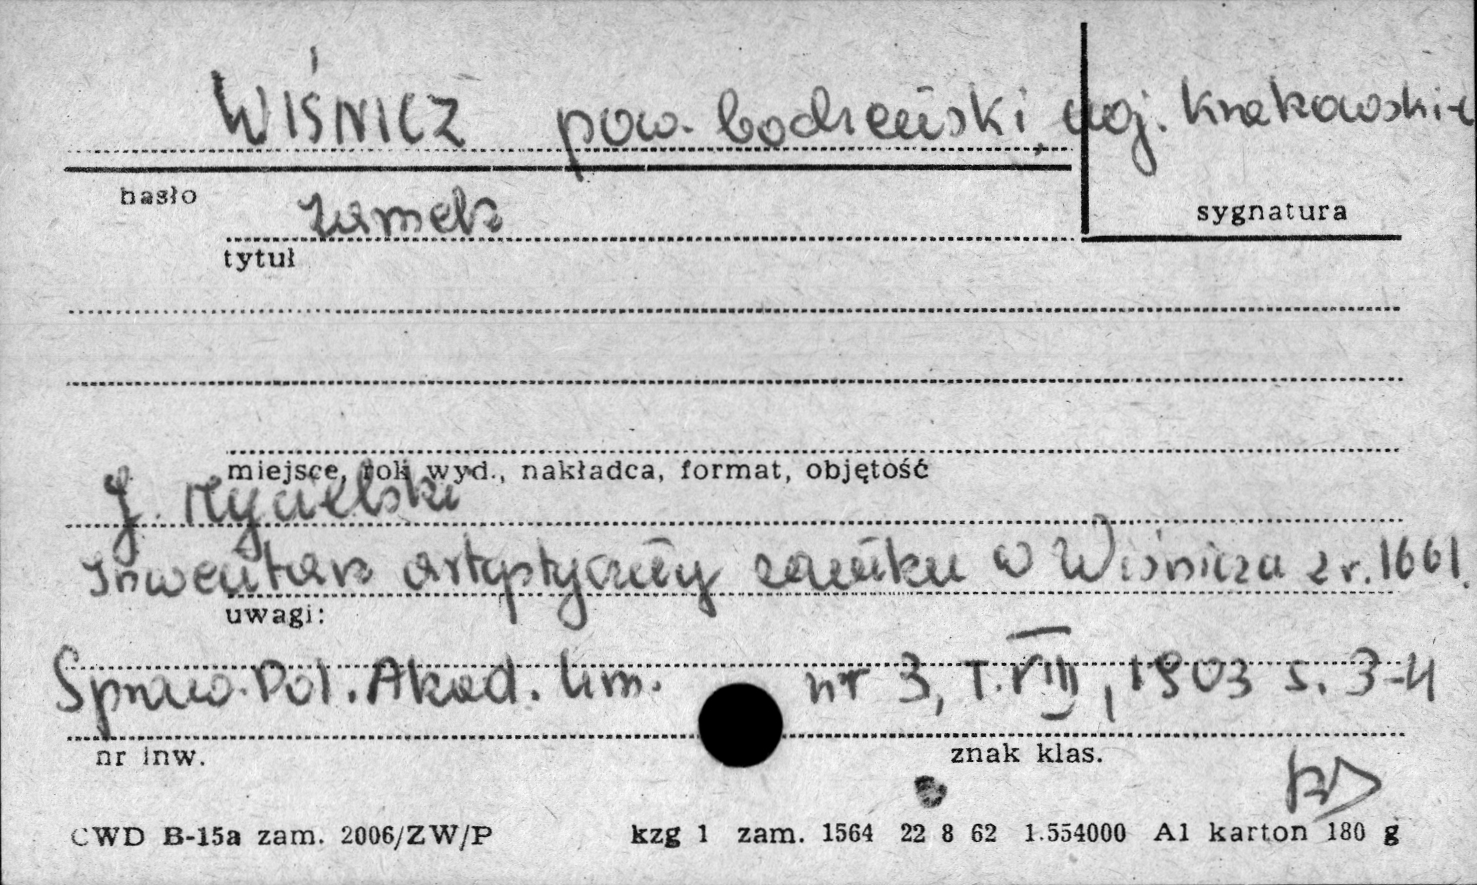 WIŚNICZ pow. bocheński, woj. krakowskie
hasło
zamek
sygnatura
tytuł
miejsce, rok wyd., nakładca, format, objętość
J. Mycielski
Inwentarz artystyczny zamku w Wiśniczu z r. 1661.
uwagi:
Spraw. Pol. Akad. Um. nr 3, T. VIII, 1903 s. 3-4
nr inw.
znak klas.
CWD B-15a zam. 2006/ZW/P kzg 1 zam. 1564 22 8 62 1.554000 A1 karton 180 g